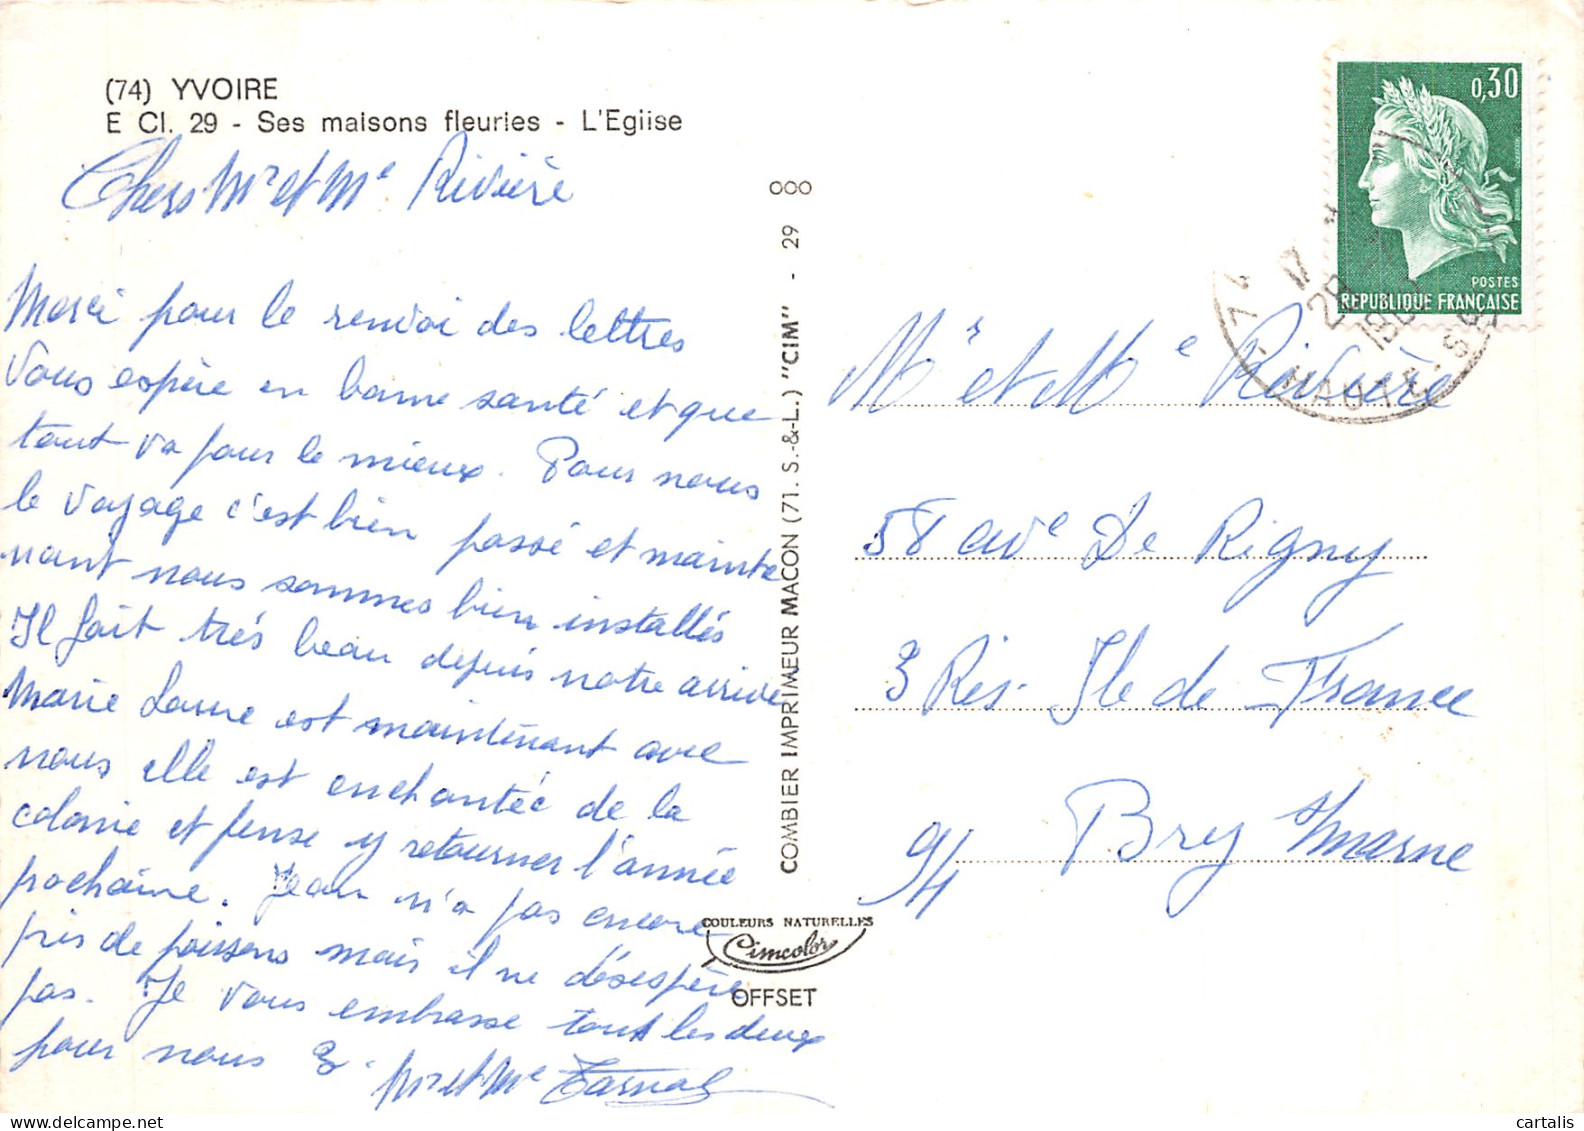 (74) YVOIRE
E Cl. 29 - Ses maisons fleuries - L'Eglise
Chers Mr et Me Rivière
Merci pour le renvoi des lettres
Vous espère en bonne santé et que
tout va pour le mieux. Pour nous
le voyage c'est bien passé et mainte
nant nous sommes bien installés
Il fait très beau depuis notre arrivée
Marie Laure est maintenant avec
nous elle est enchantée de la
colonie et pense y retourner l'année
prochaine. Jean n'a pas encore
pris de poissons mais il ne désespère
pas. Je vous embrasse tout les deux
pour nous 3.
Mr et Me
COMBIER IMPRIMEUR MACON (71. S.-&-L.) "CIM" - 29 000
COULEURS NATURELLES
Cimcolor
OFFSET
0,30
POSTES
REPUBLIQUE FRANÇAISE
74
17
HAUTE-S
Mr et Me Rivière
58 ave De Rigny
3 Res. Ile de France
94 Bry s/marne
cartalis